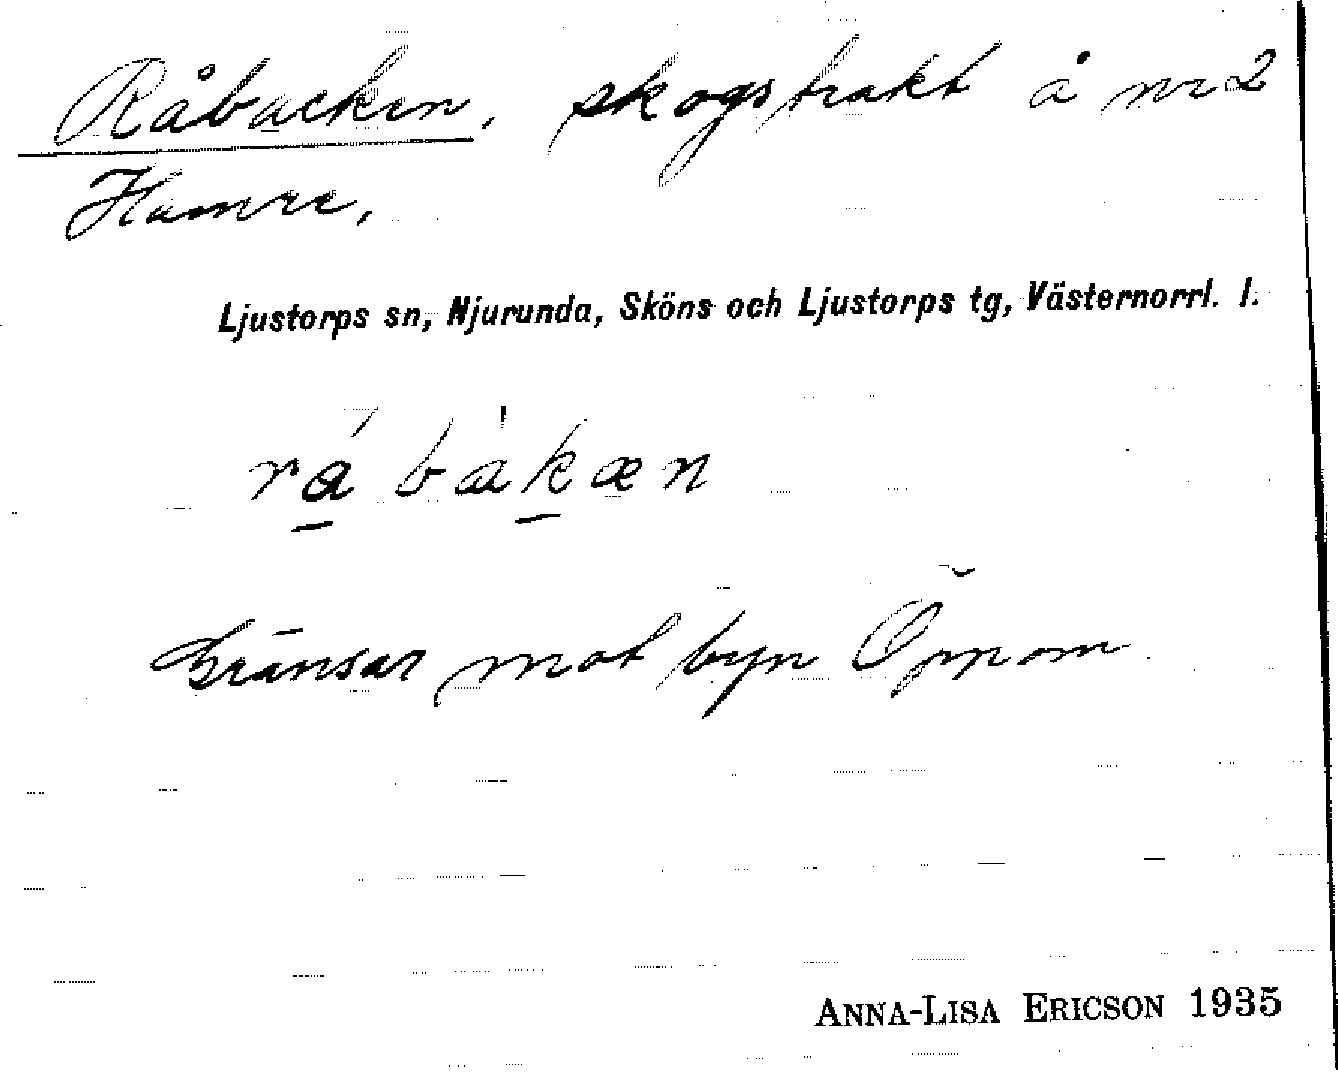 Råbacken, skogstrakt å nr 2
Hamre,
Ljustorps sn, Njurunda, Sköns och Ljustorps tg, Västernorrl. l.
Gränsar mot byn Öppom
ANNA-LISA ERICSON 1935